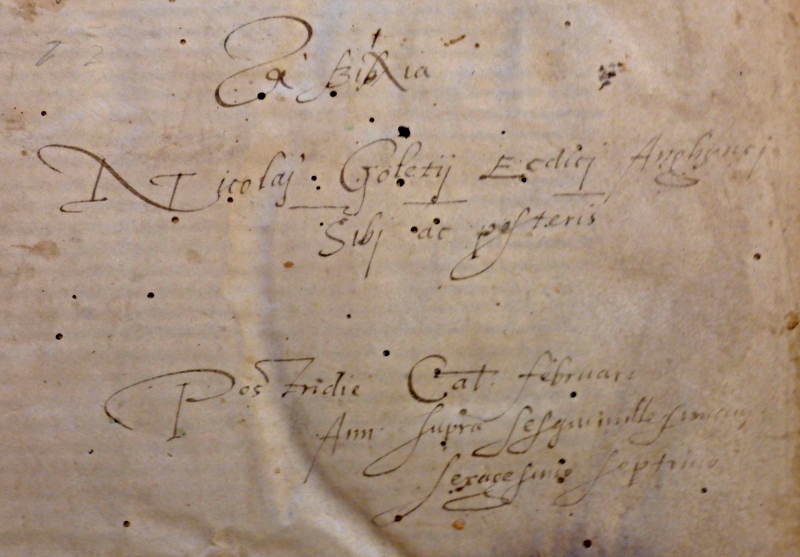 Ex Biblia
Nicolaj Goletij
Sibj ac posteris
Postridie Cal. februar
Ann supra sesquimillesimum
sexagesimo septimo